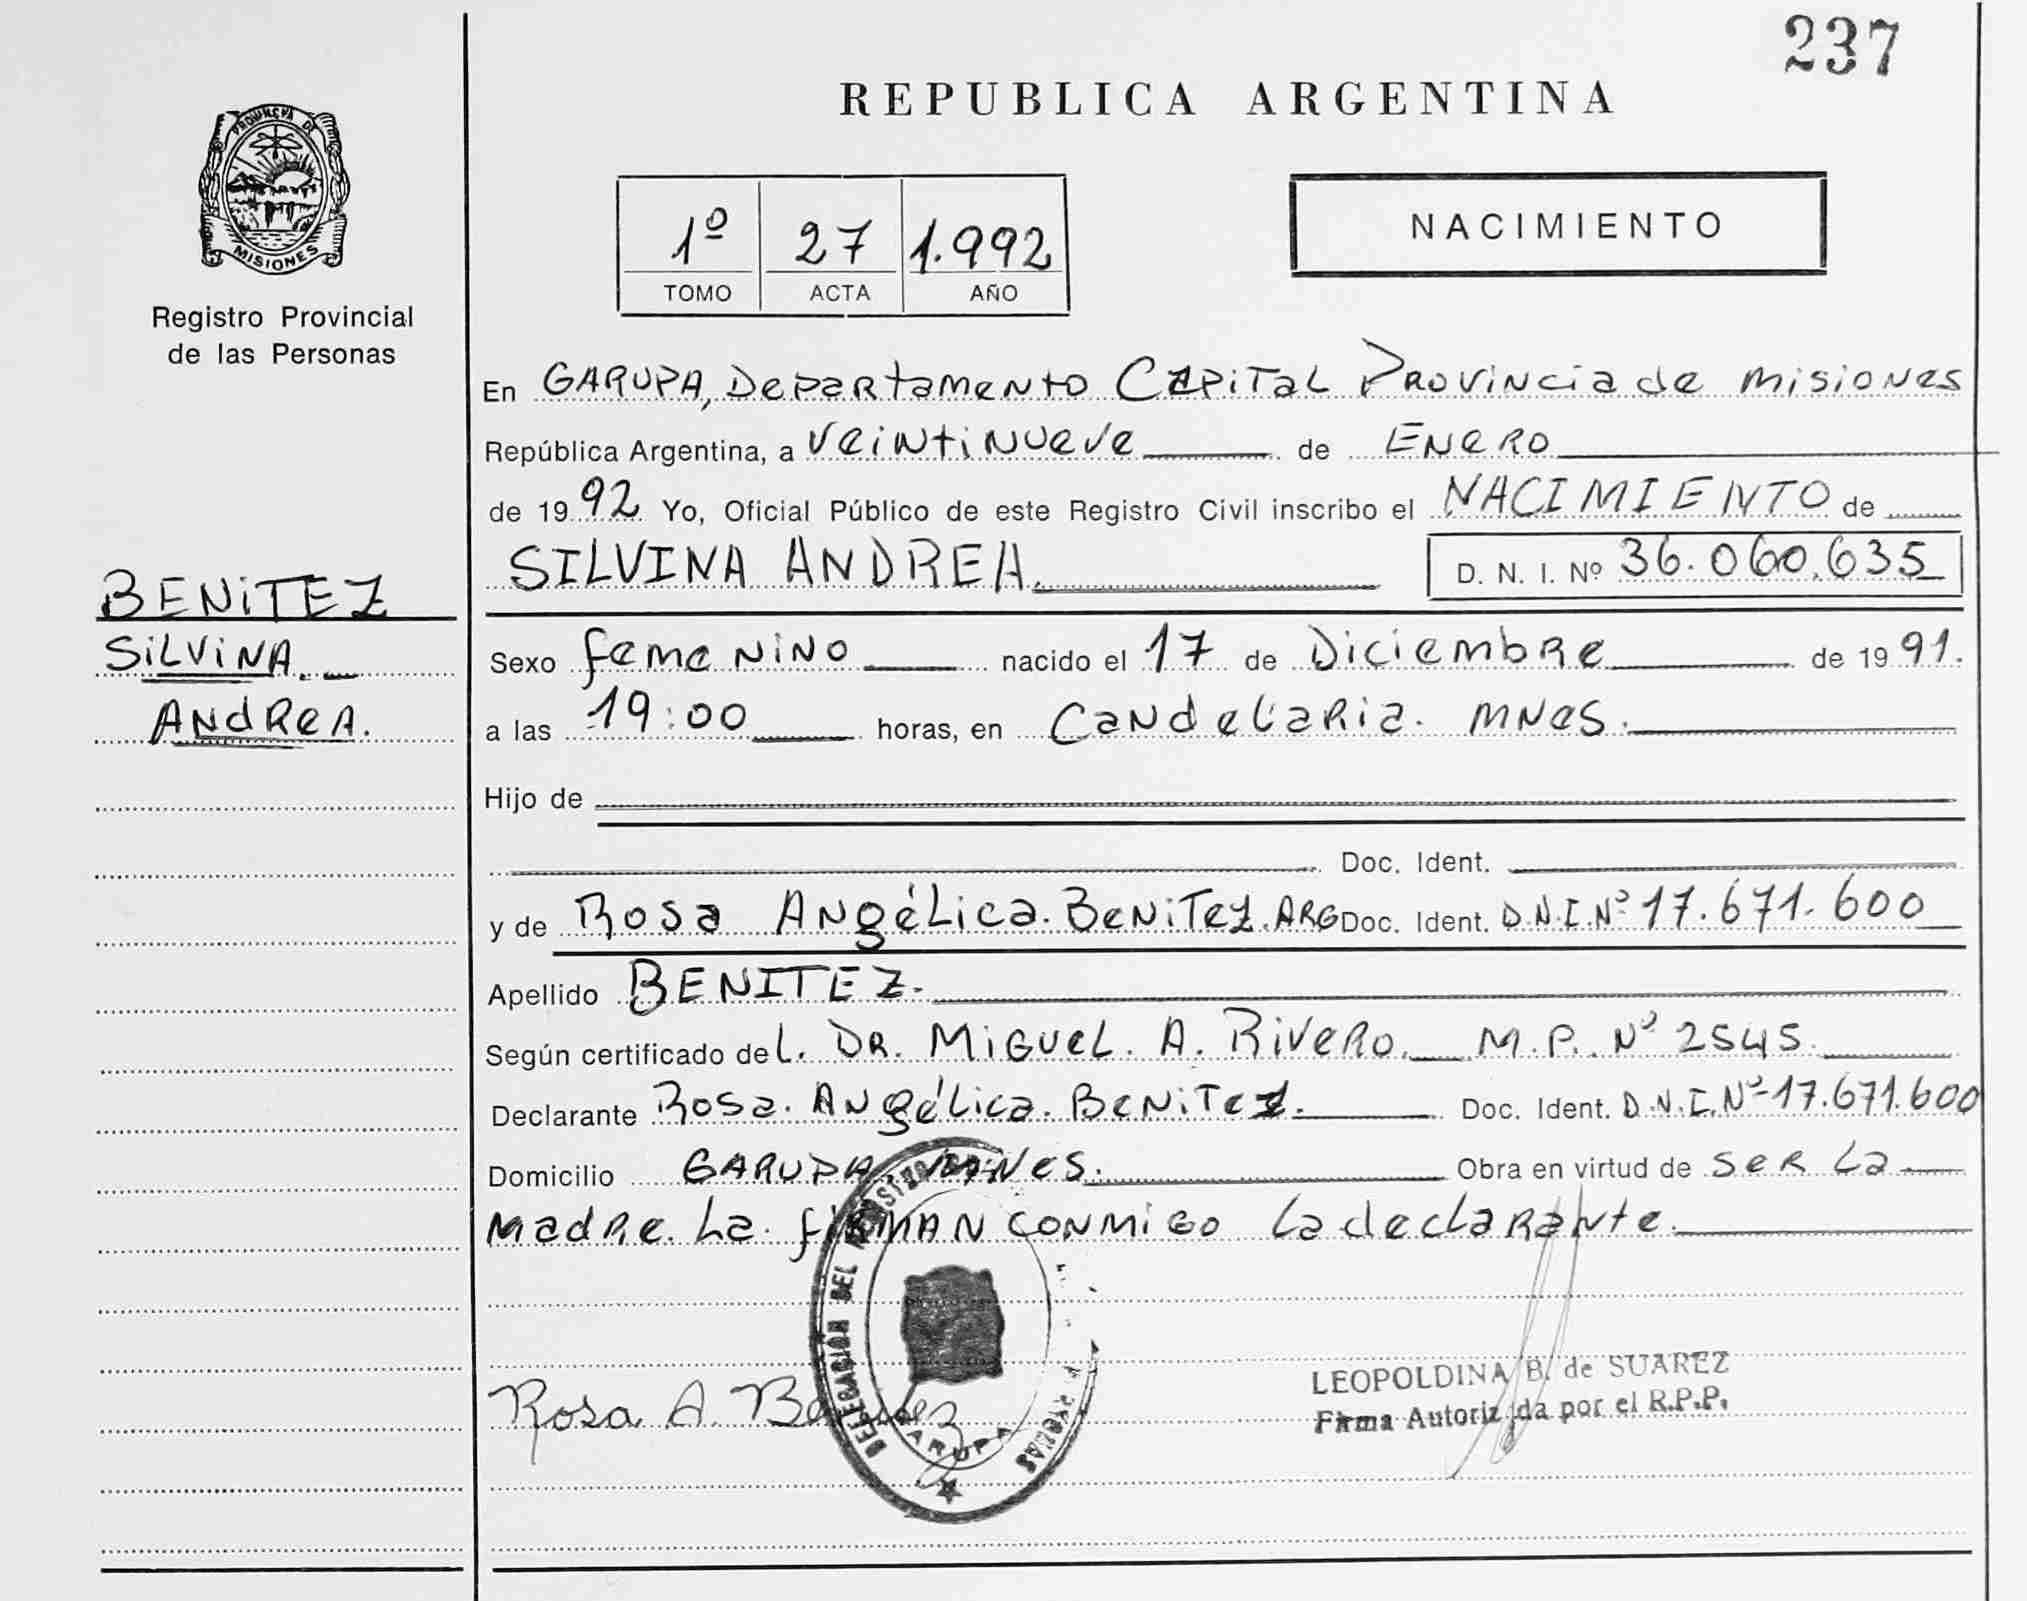 237
REPUBLICA ARGENTINA
PROVINCIA DE
MISIONES
Registro Provincial
de las Personas
1º 27 1.992
TOMO ACTA AÑO
NACIMIENTO
En GARUPA, Departamento Capital Provincia de misiones
República Argentina, a veintinueve de Enero
de 1992 Yo, Oficial Público de este Registro Civil inscribo el NACIMIENTO de
SILVINA ANDREA. D. N. I. Nº 36.060.635
BENITEZ
SILVINA.
ANDREA.
Sexo femenino nacido el 17 de Diciembre de 1991.
a las 19:00 horas, en Candelaria. mnes.
Hijo de
Doc. Ident.
y de Rosa Angélica. Benitez. ARG Doc. Ident. D.N.I.Nº 17.671.600
Apellido BENITEZ.
Según certificado del. DR. Miguel. A. Rivero. M.P. Nº 2545.
Declarante Rosa. Angélica. Benitez. Doc. Ident. D.N.I.Nº 17.671.600
Domicilio GARUPA. MNES. Obra en virtud de ser la
madre. La. firman conmigo la declarante.
DELEGACIÓN DEL REGISTRO
GARUPA
Rosa A. Benitez
LEOPOLDINA B. de SUAREZ
Firma Autorizada por el R.P.P.